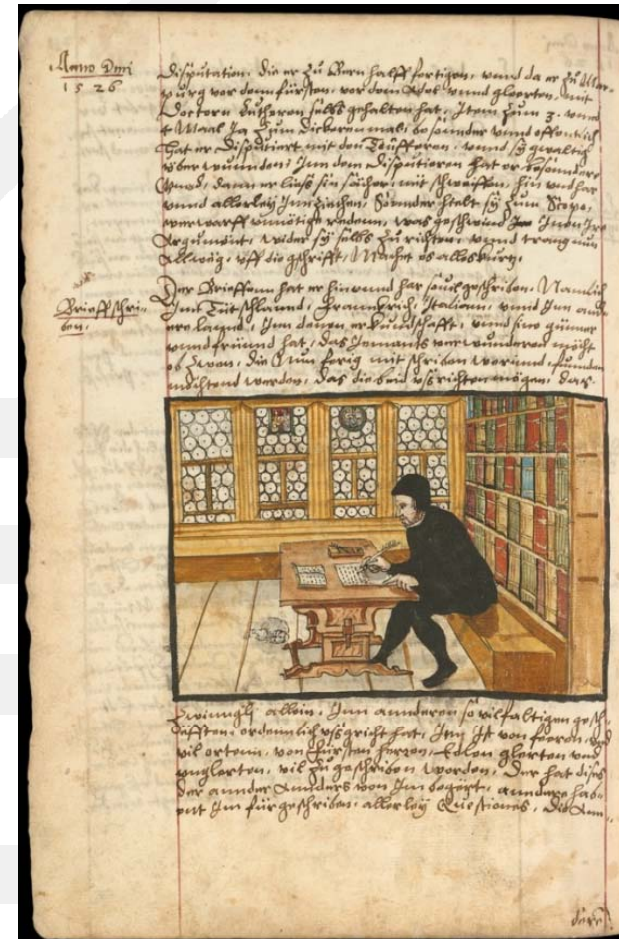 Anno Dni
1526
disputation, die er zu Bern halff fertigen, vnnd da er zu Mar-
purg vor dem fürsten, vor dem Adel vnnd glerten, mit
Doctorn Lutheren selbs gehalten hat, Item zum 3. vnnd
4 Maal Ja zum dickeren mal, besonnder vnnd offentlich
hat er Disputiert mit den Töufferen, vnnd sy gwaltig
überwunnden: Inn dem Disputieren hat er besonndere
gnad, dann er ließ sin sächer, nit schweiffen, hin vnd har
vnnd allerley Innziechen, Sonnder hielt sy zum Scopo,
verwarff vnnötige redenn, was geschwind Inen Ire
Argument, wider sy selbs zu richten, vnnd trang nun
allwäg, vff die gschrifft, Machet es alles kurtz,
Brieffschri-
ben,
Der Brieffenn hat er hin vnnd har souil geschriben, Namlich
Inn Tütschland, Franckrych, Italiam, vnnd Inn and-
ere lannd, Inn denen er kundschafft, vnnd sine günner
vnnd fründ hat, das Jemants verwunderen möcht
ob zwen, die Nun ferig mit schriben werind, funden
möchtend werden, das die beid vßrichten mögen, das
Zwinngli allein, Inn annderen so vilfaltigen gesch-
äfften, ordennlich vßgricht hat, Im Ist von feeren, vnd
vil orten, von fürsten herren, Edlen glerten vnd
vnglerten, vil zu geschriben worden, Der hat dises
der annder Annders von Im begärt, anndere hab-
ent Im für geschriben, allerley Questiones, Des Ann-
dere